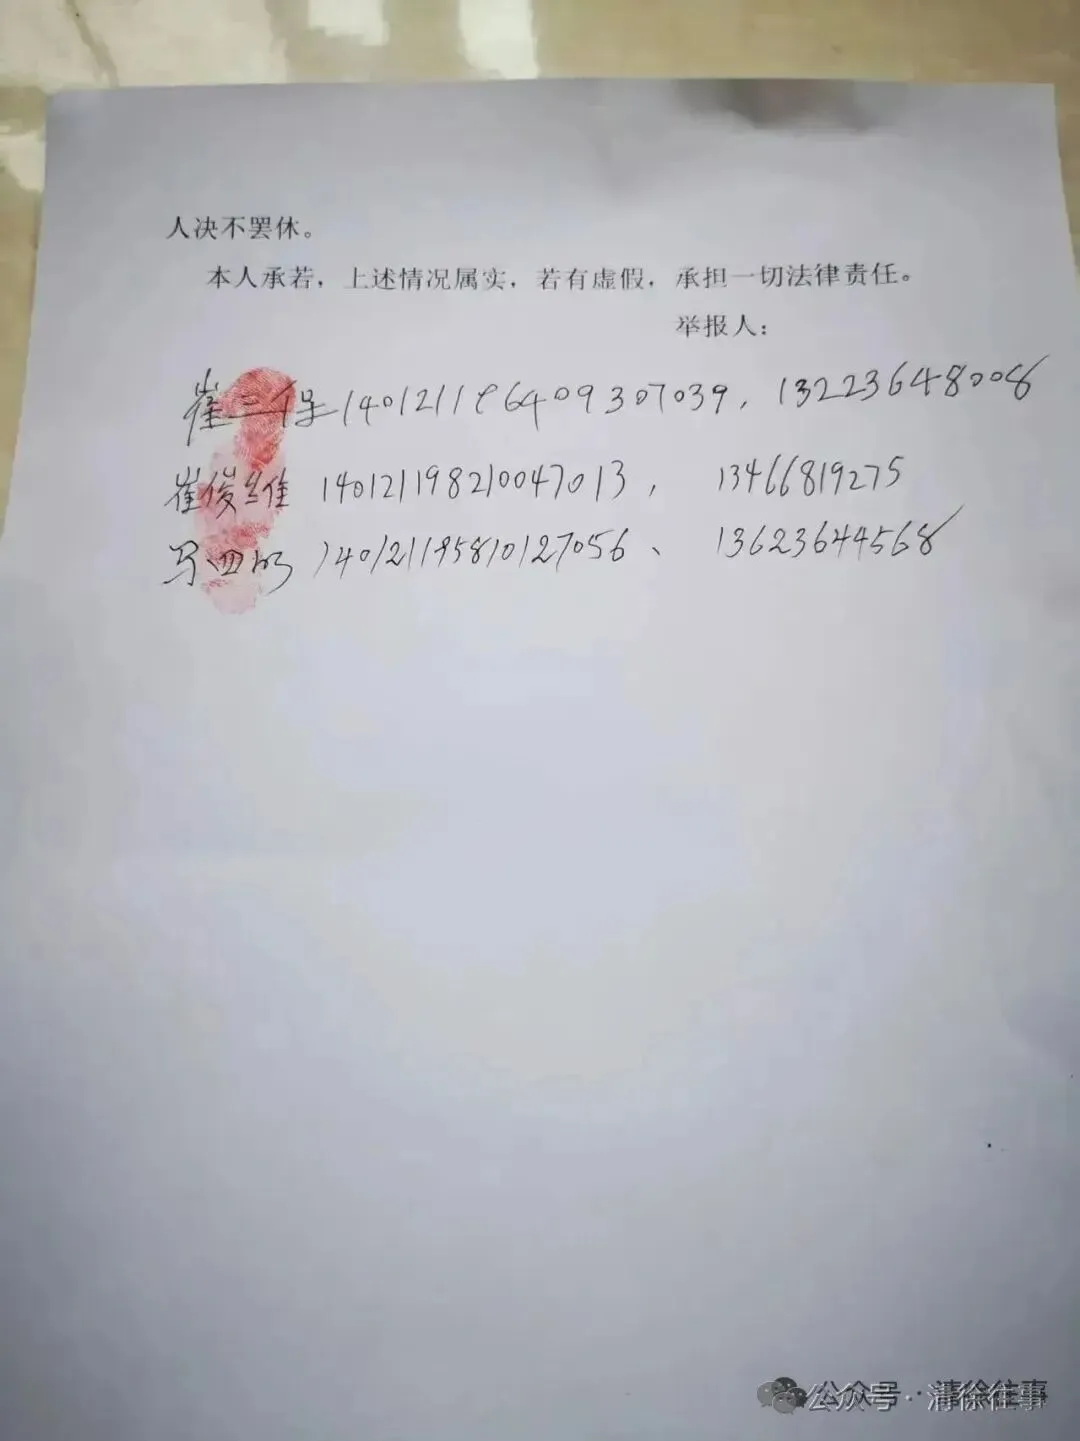 人决不罢休。
本人承若，上述情况属实，若有虚假，承担一切法律责任。
举报人：
崔三保 140121196409307039，13223648008
崔俊维 140121198210047013， 13466819275
140121195810127056、 13623644568
公众号 · 清徐往事